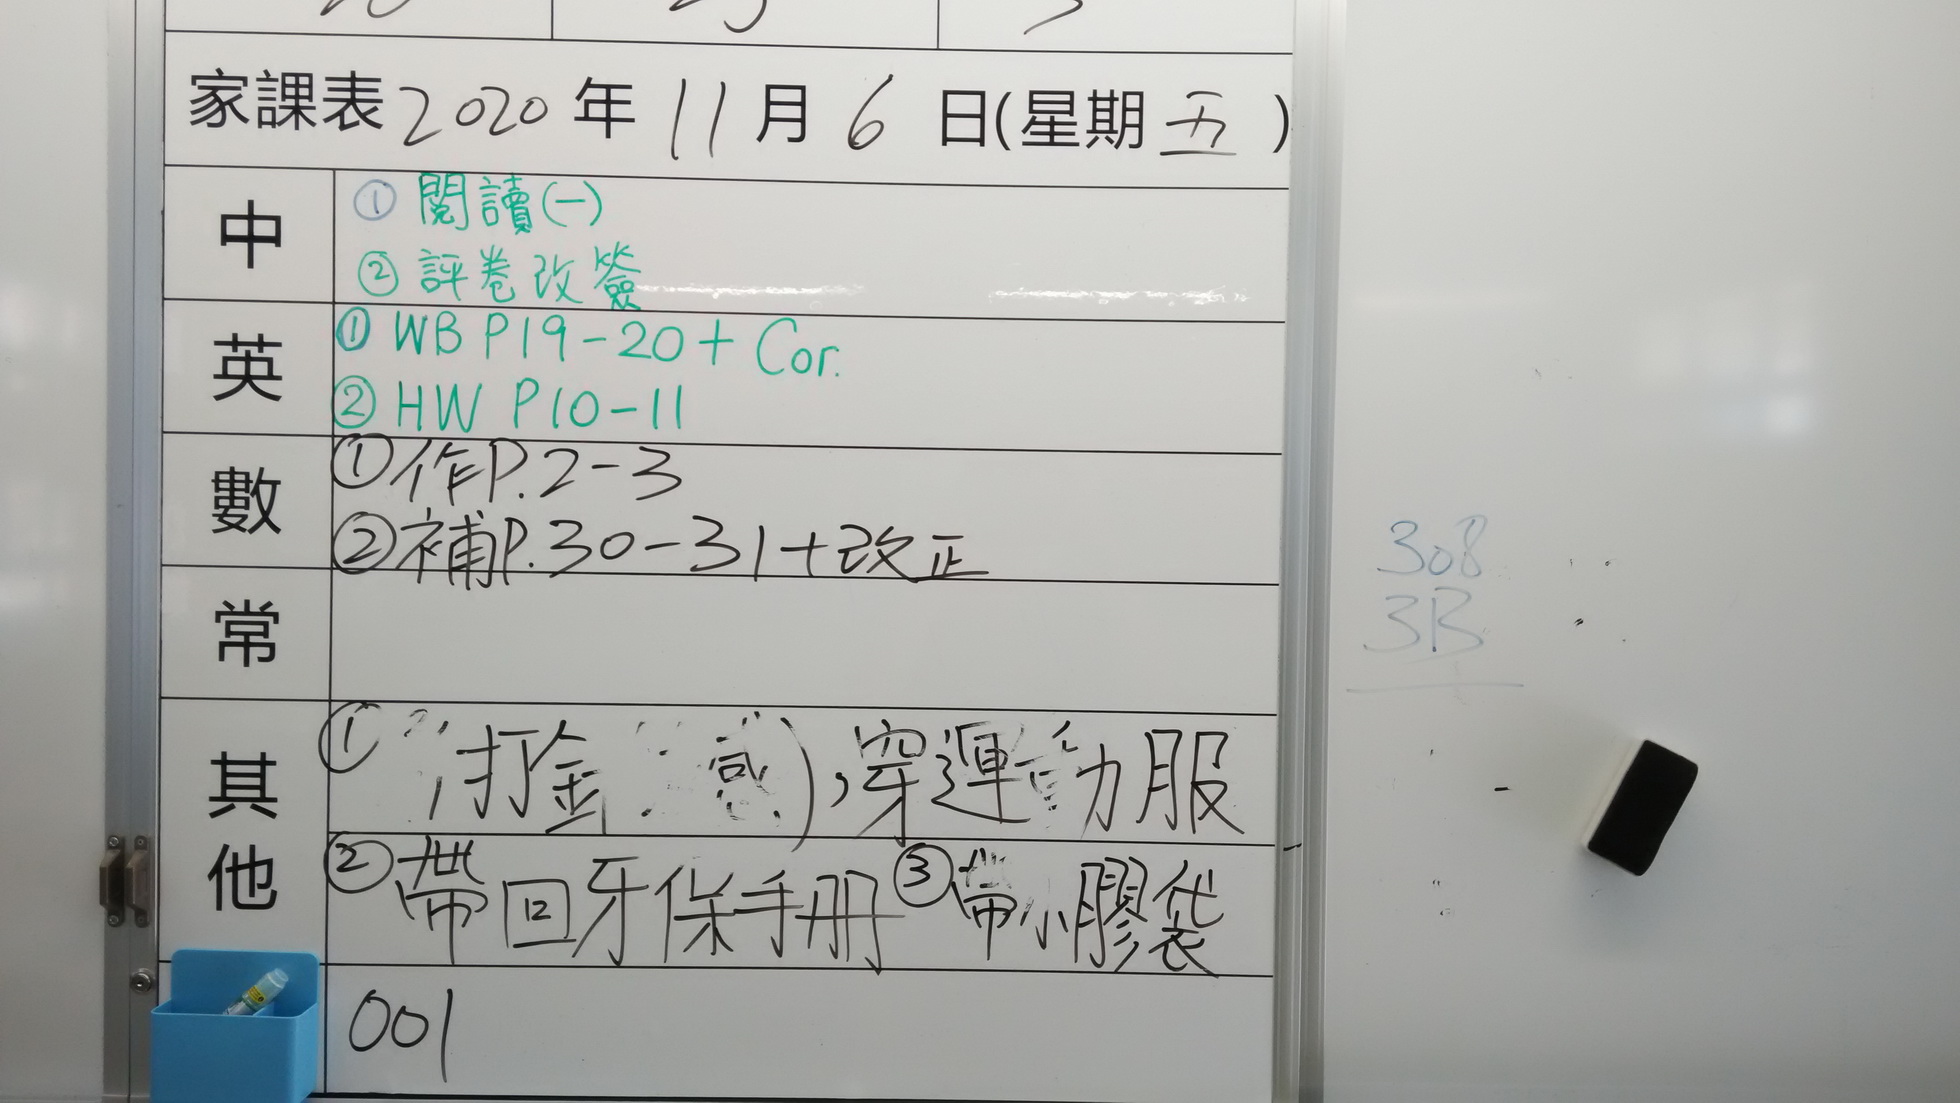 家課表 2020 年 11 月 6 日(星期 五 )
中
① 閱讀(一)
② 評卷改簽
英
① WB P19-20 + Cor.
② HW P10-11
數
① 作P.2-3
② 補P.30-31+改正
常
其他
① 打金 感),穿運動服
② 帶回牙保手冊 ③ 帶小膠袋
001
308
3B